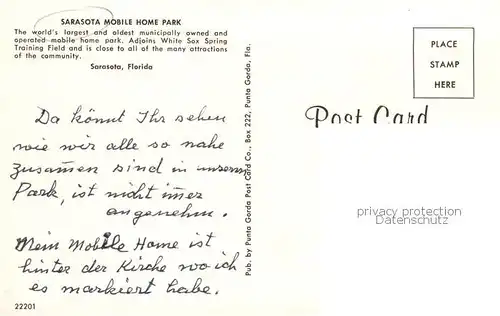 SARASOTA MOBILE HOME PARK
The world's largest and oldest municipally owned and
operated mobile home park. Adjoins White Sox Spring
Training Field and is close to all of the many attractions
of the community.
Sarasota, Florida
Da könnt Ihr sehen
wie wir alle so nahe
zusam̄en sind in unserm
Park, ist nicht im̄er
angenehm.
Mein Mobile Home ist
hinter der Kirche wo ich
es markiert habe.
22201
Pub. by Punta Gorda Post Card Co., Box 222, Punta Gorda, Fla.
PLACE
STAMP
HERE
Post Card
privacy protection
Datenschutz